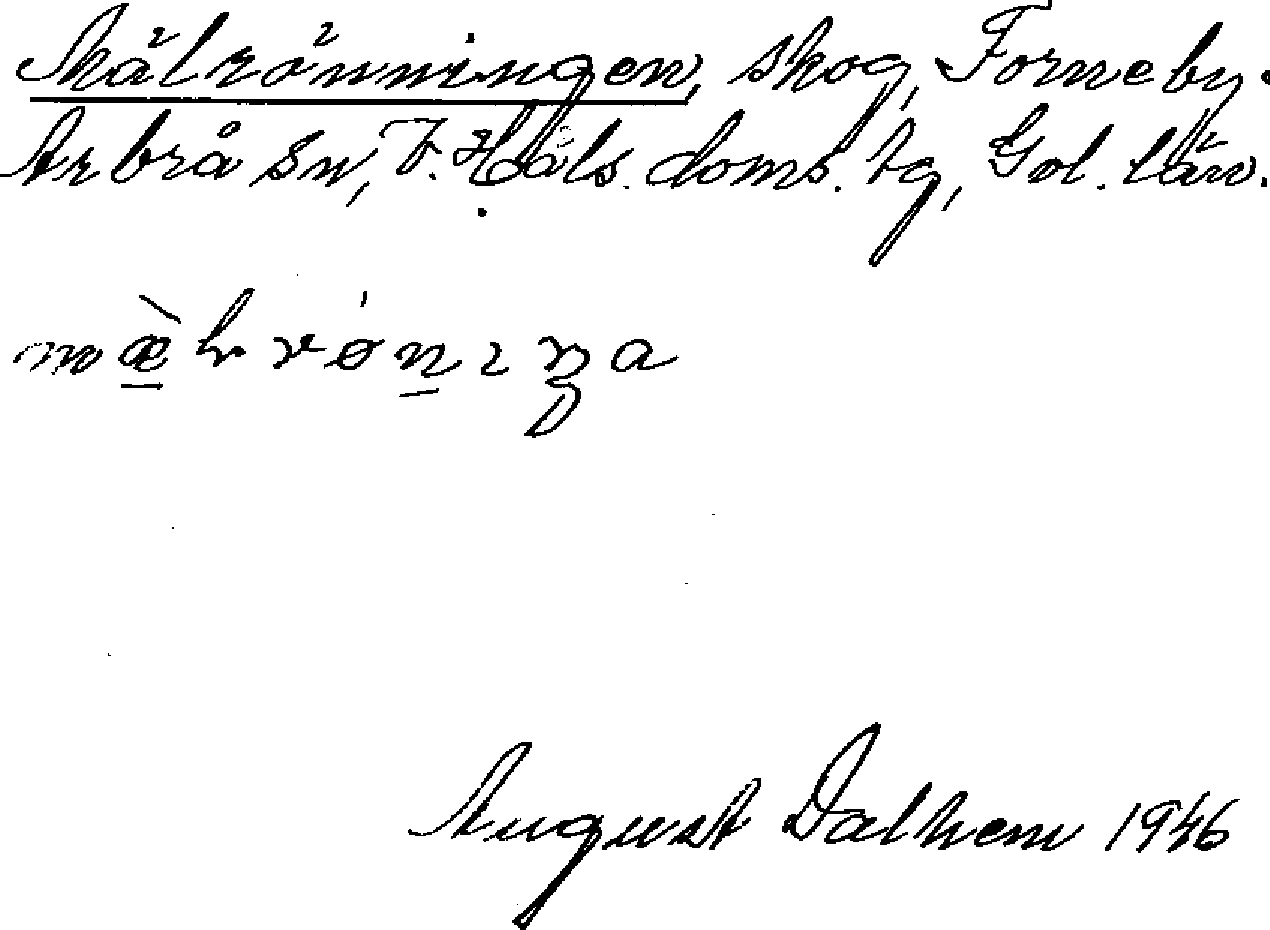 Mälrönningen, skog, Forneby.
Arbrå sn, V. Häls. doms. tg, Gvl. län.
August Dalhem 1946